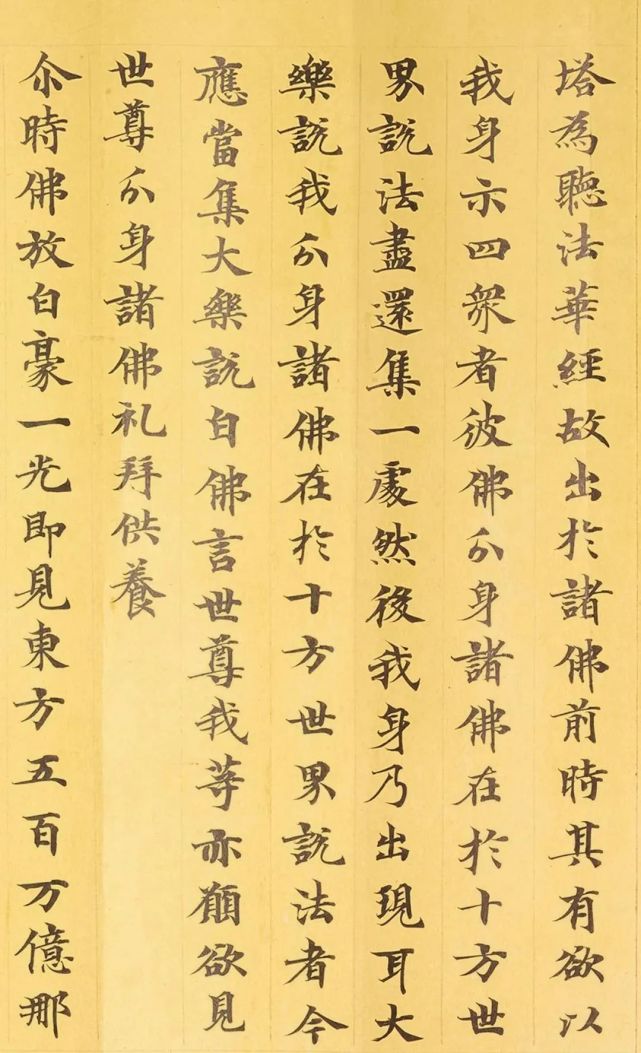 塔為聽法華經故出於諸佛前時其有欲以
我身示四衆者彼佛分身諸佛在於十方世
界說法盡還集一處然後我身乃出現耳大
樂說我分身諸佛在於十方世界說法者今
應當集大樂說白佛言世尊我等亦願欲見
世尊分身諸佛礼拜供養
尒時佛放白豪一光即見東方五百万億那